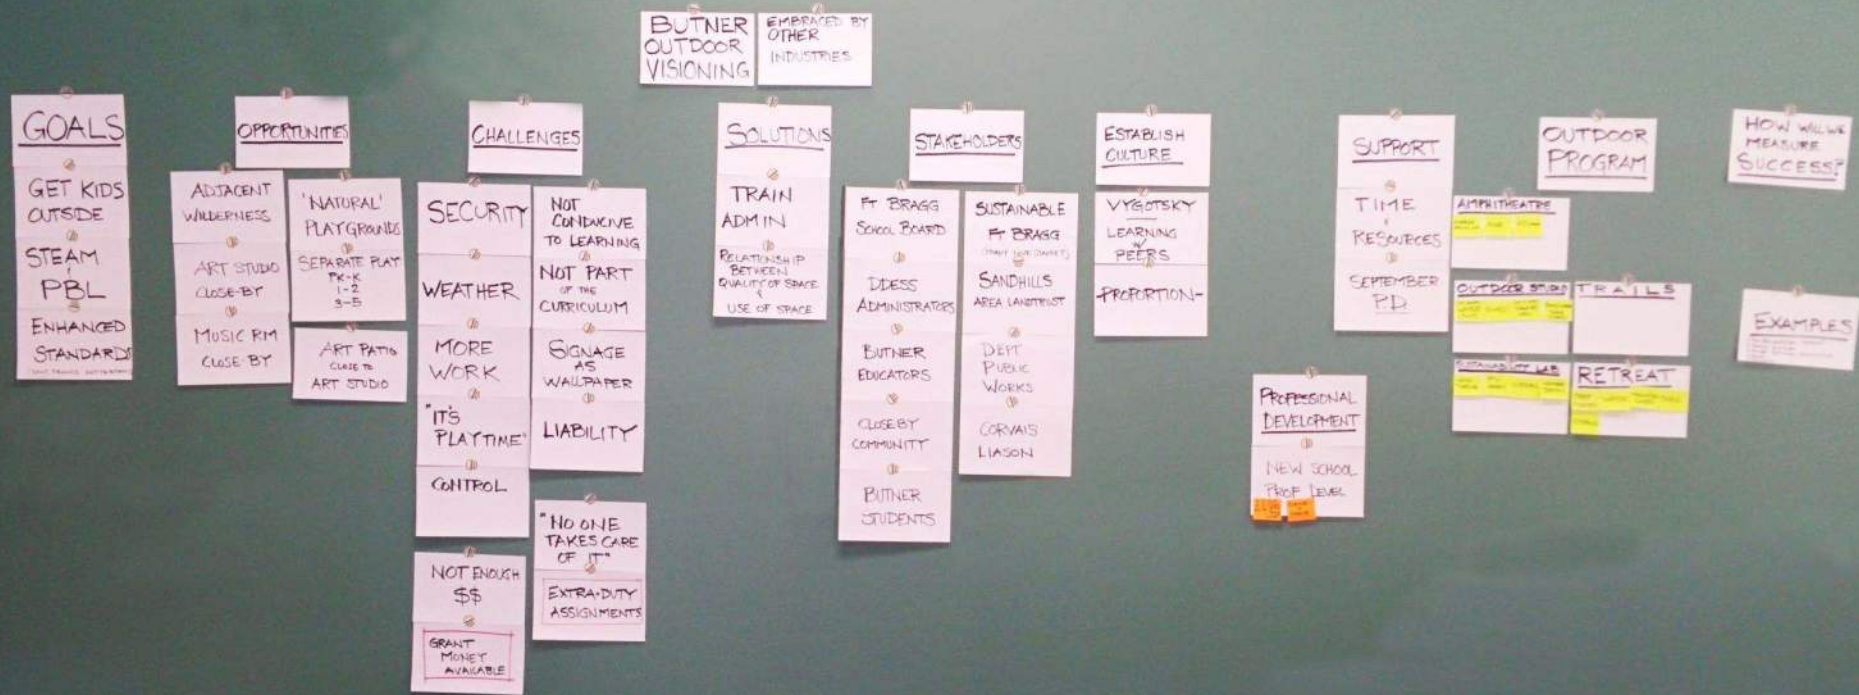 BUTNER
OUTDOOR
VISIONING
EMBRACED BY
OTHER
INDUSTRIES
GOALS
GET KIDS
OUTSIDE
STEAM
PBL
ENHANCED
STANDARDS
OPPORTUNITIES
ADJACENT
WILDERNESS
ART STUDIO
CLOSE-BY
MUSIC RM
CLOSE-BY
'NATURAL'
PLAYGROUNDS
SEPARATE PLAY
PK-K
1-2
3-5
ART PATIO
CLOSE TO
ART STUDIO
CHALLENGES
SECURITY
WEATHER
MORE
WORK
"IT'S
PLAYTIME"
CONTROL
NOT ENOUGH
$$
GRANT
MONEY
AVAILABLE
NOT
CONDUCIVE
TO LEARNING
NOT PART
OF THE
CURRICULUM
SIGNAGE
AS
WALLPAPER
LIABILITY
"NO ONE
TAKES CARE
OF IT"
EXTRA-DUTY
ASSIGNMENTS
SOLUTIONS
TRAIN
ADMIN
RELATIONSHIP
BETWEEN
QUALITY OF SPACE
&
USE OF SPACE
STAKEHOLDERS
FT BRAGG
SCHOOL BOARD
DDESS
ADMINISTRATORS
BUTNER
EDUCATORS
CLOSEBY
COMMUNITY
BUTNER
STUDENTS
SUSTAINABLE
FT BRAGG
SANDHILLS
AREA LANDTRUST
DEPT
PUBLIC
WORKS
CORVAIS
LIASON
ESTABLISH
CULTURE
VYGOTSKY
LEARNING
W/
PEERS
-PROPORTION-
SUPPORT
TIME
&
RESOURCES
SEPTEMBER
P.D.
PROFESSIONAL
DEVELOPMENT
NEW SCHOOL
PROF DEVEL
OUTDOOR
PROGRAM
AMPHITHEATRE
OUTDOOR STUDIO
TRAILS
SUSTAINABILITY LAB
RETREAT
HOW WILL WE
MEASURE
SUCCESS?
EXAMPLES